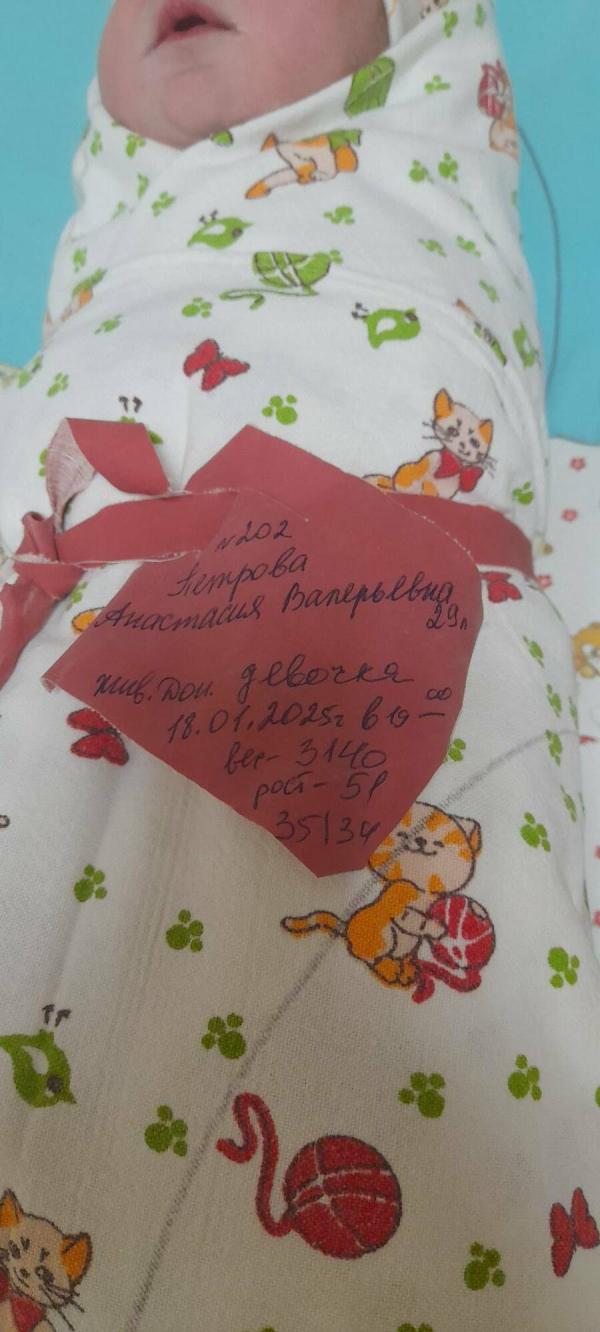 №202
Петрова
Анастасия Валерьевна
29л
жив. дон. девочка
18.01.2025г в 19 00
вес- 3140
рост- 51
35/34